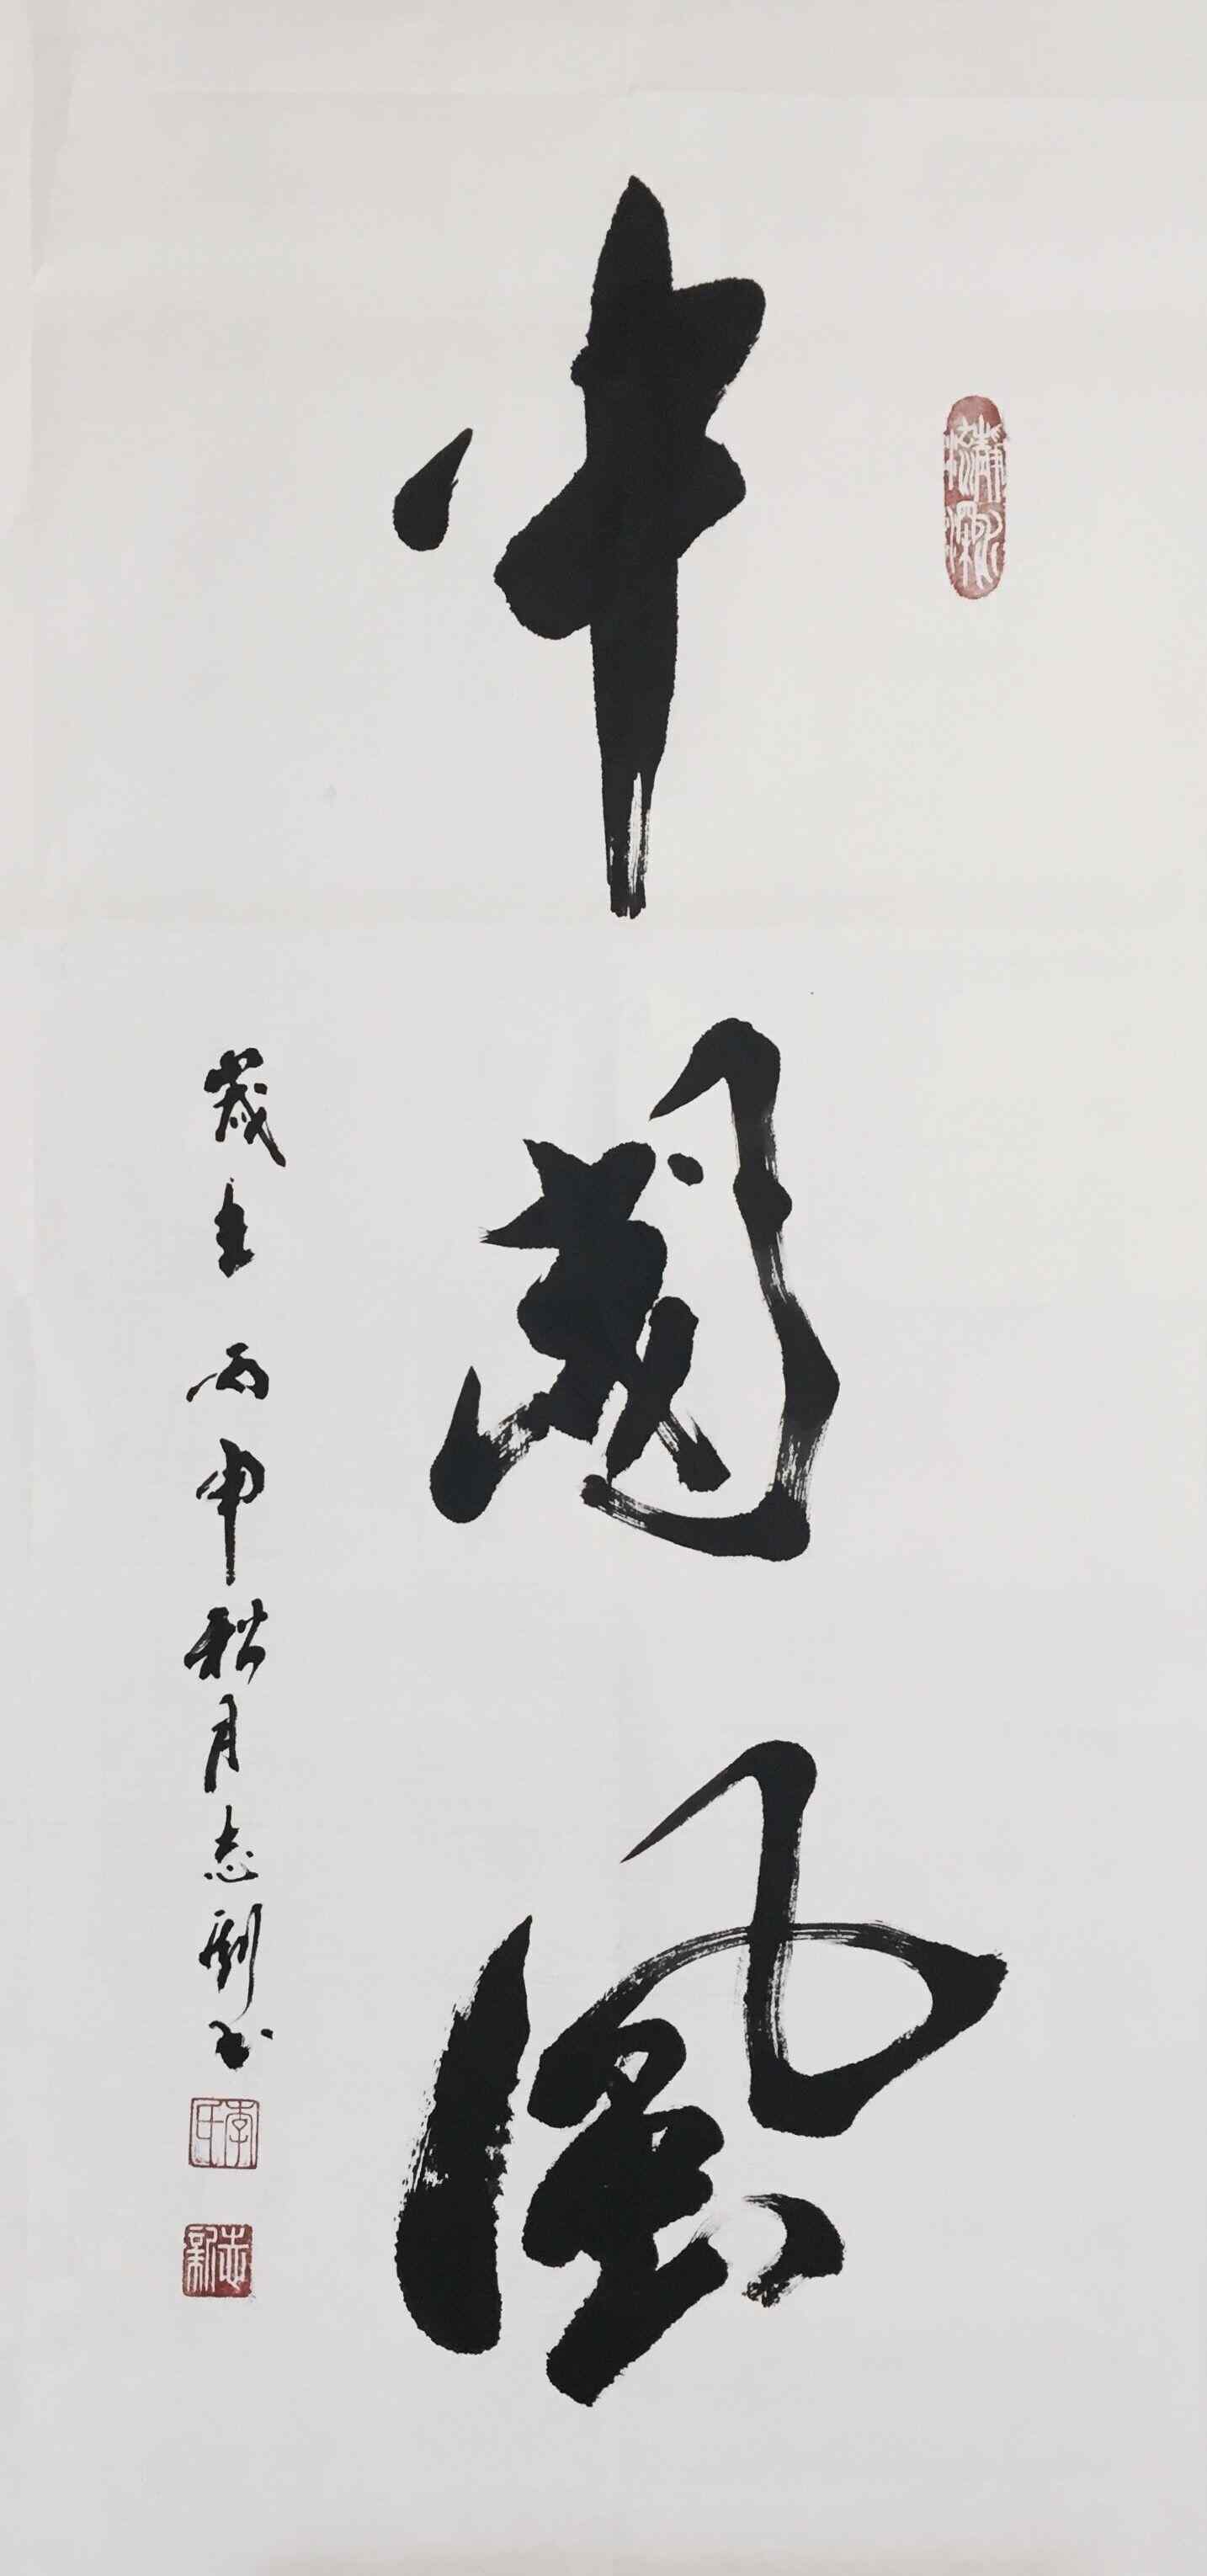 中國風
歲在丙申秋月志剛書
李氏